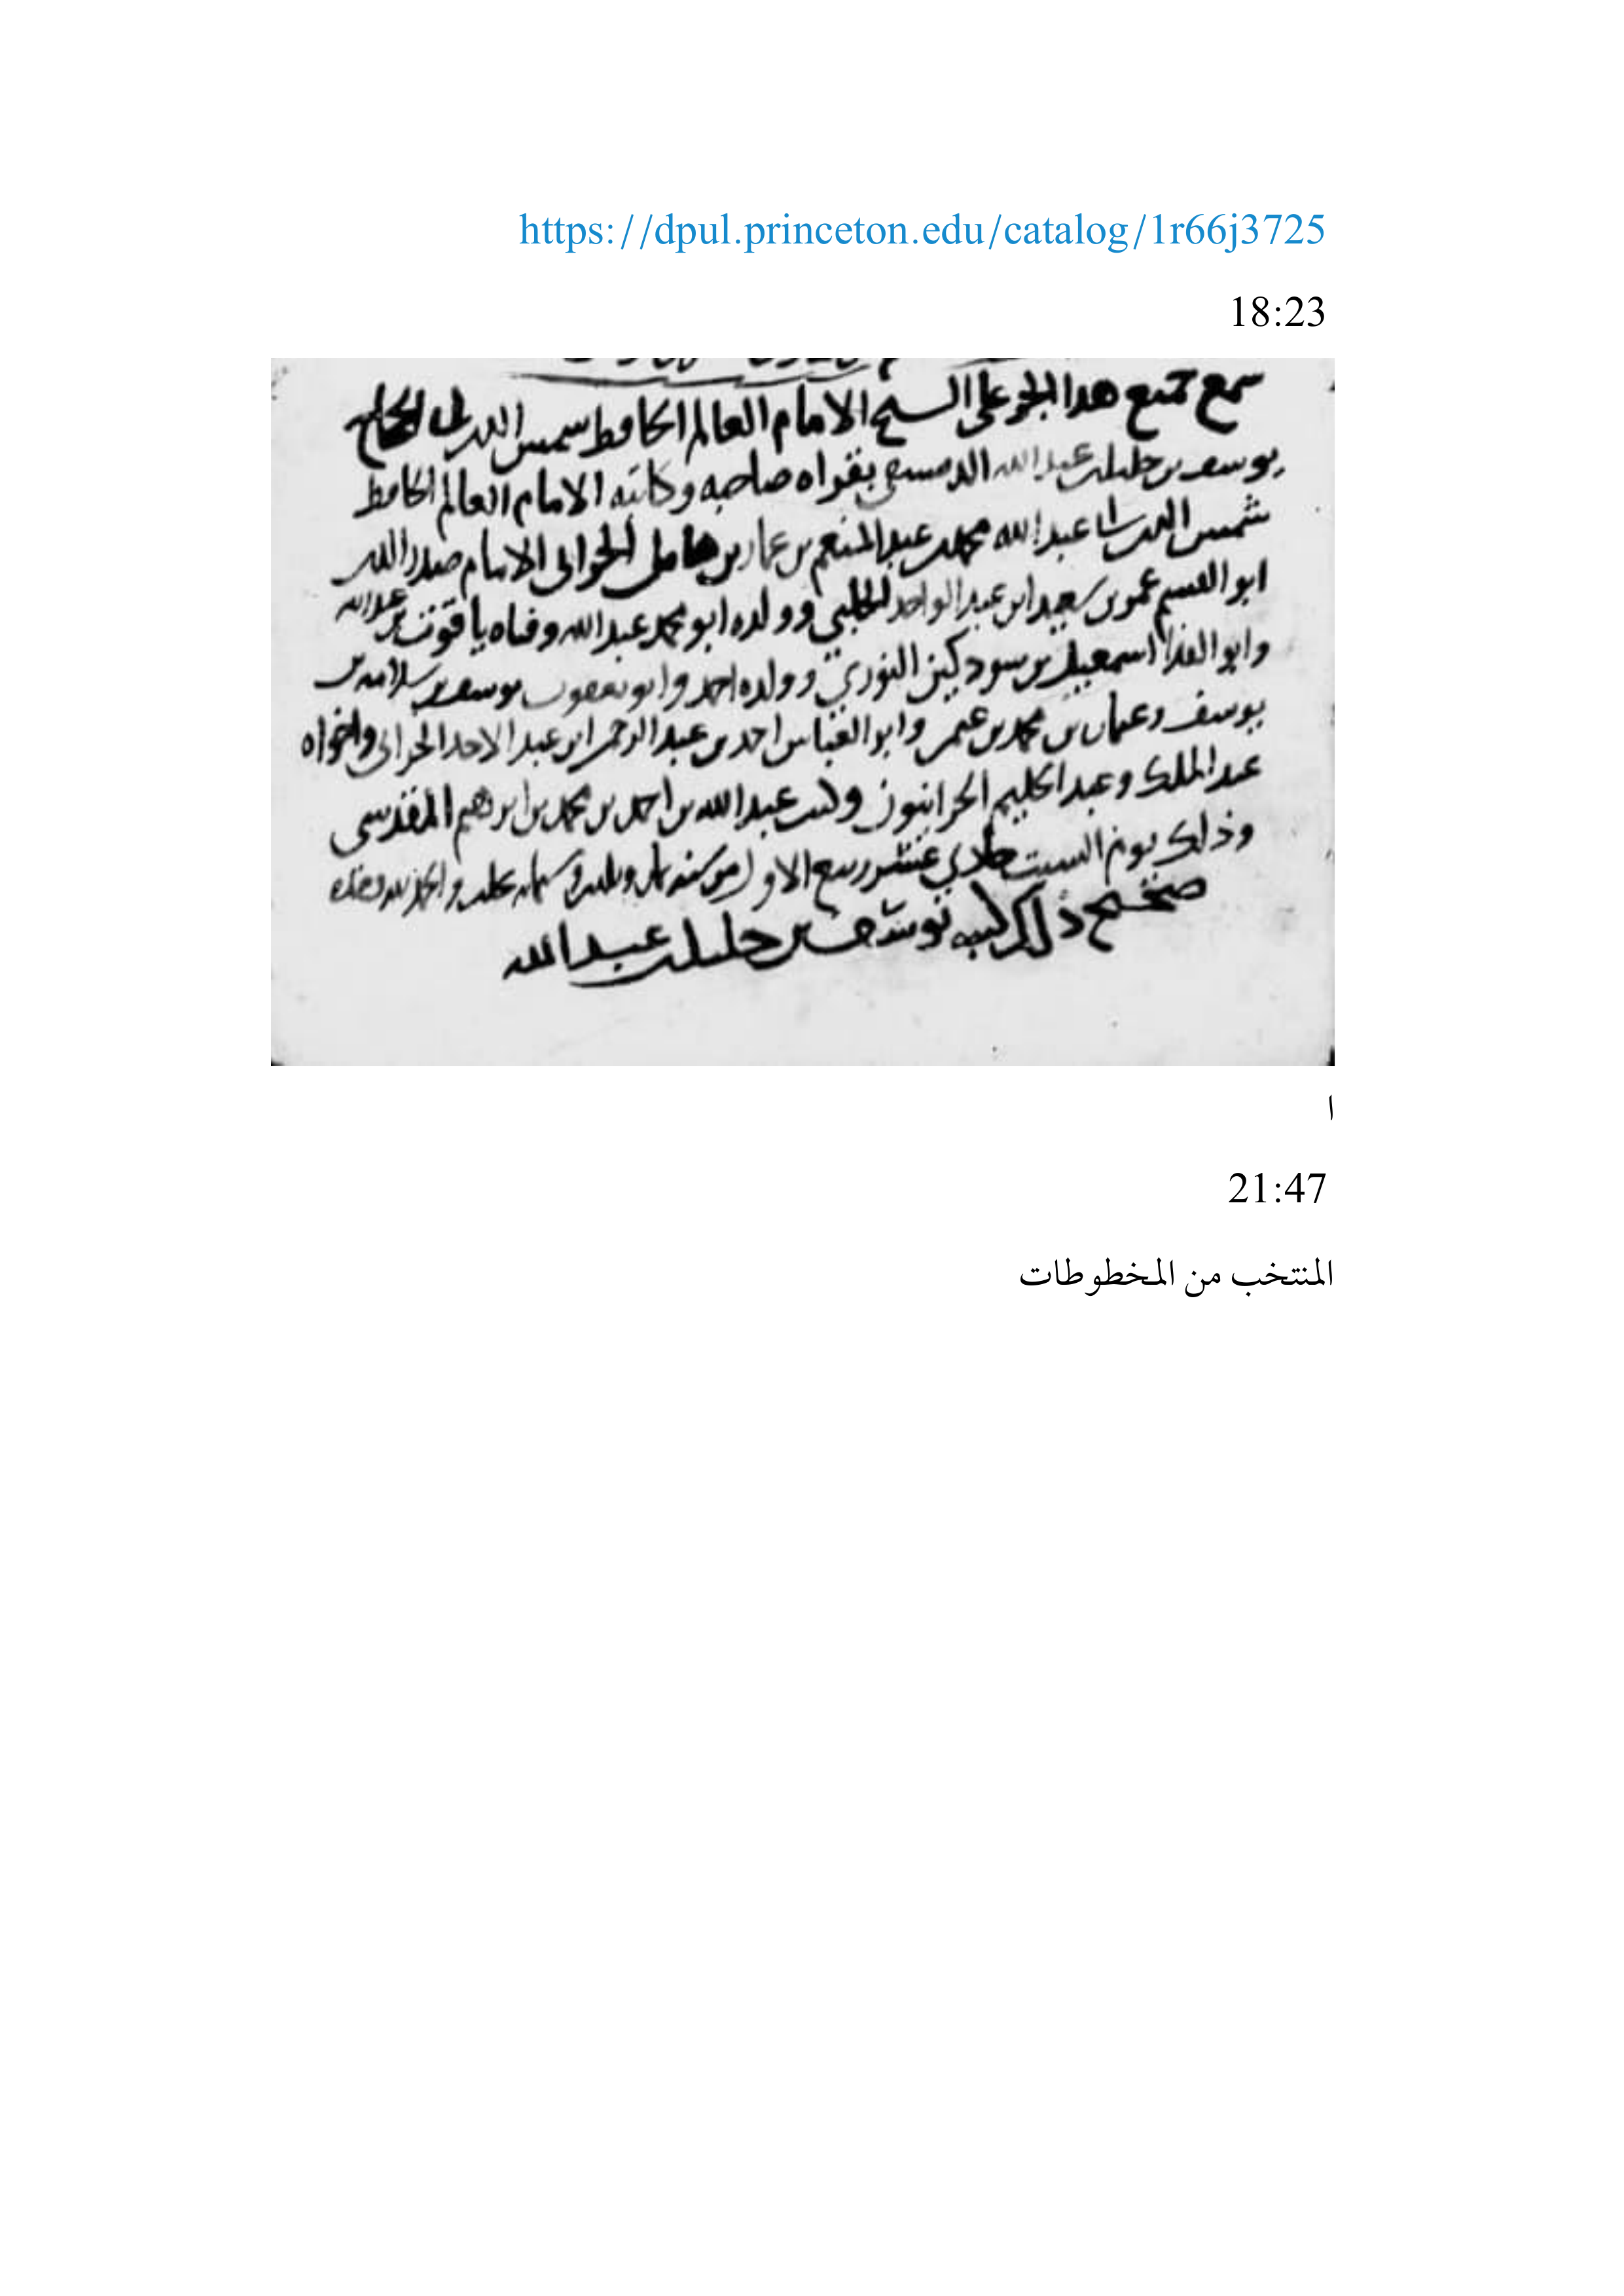 https://dpul.princeton.edu/catalog/1r66j3725
18:23
سمع جميع هذا الجزء على الشيخ الامام العالم الحافظ شمس الدين ابى الحجاج
يوسف بن خليل بن عبد الله الدمشقي بقراه صاحبه وكاتبه الامام العالم الحافظ
شمس الدين ابا عبد الله محمد بن عبد المنعم بن عمار بن هامل الحرانى الامام صدر الدين
ابو القسم عمر بن سعيد ابن عبد الواحد الحلبي وولده ابو محمد عبد الله وفتاه ياقوت بن عبد الله
وابو الفدا اسمعيل بن سودكين النوري وولده احمد وابو يعقوب يوسف بن سلامه بن
يوسف وعثمان بن محمد بن عمر وابو العباس احمد بن عبد الرحمن ابن عبد الاحد الحرانى واخواه
عبد الملك وعبد الحليم الحرانيون وكتب عبد الله بن احمد بن محمد بن ابرهيم المقدسى
وذلك يوم السبت حادي عشر ربيع الاول من سنه ثمان وثلثين وستمايه بحلب والحمد لله وحده
صحيح ذلك كتبه يوسف بن خليل بن عبد الله
ا
21:47
المنتخب من المخطوطات